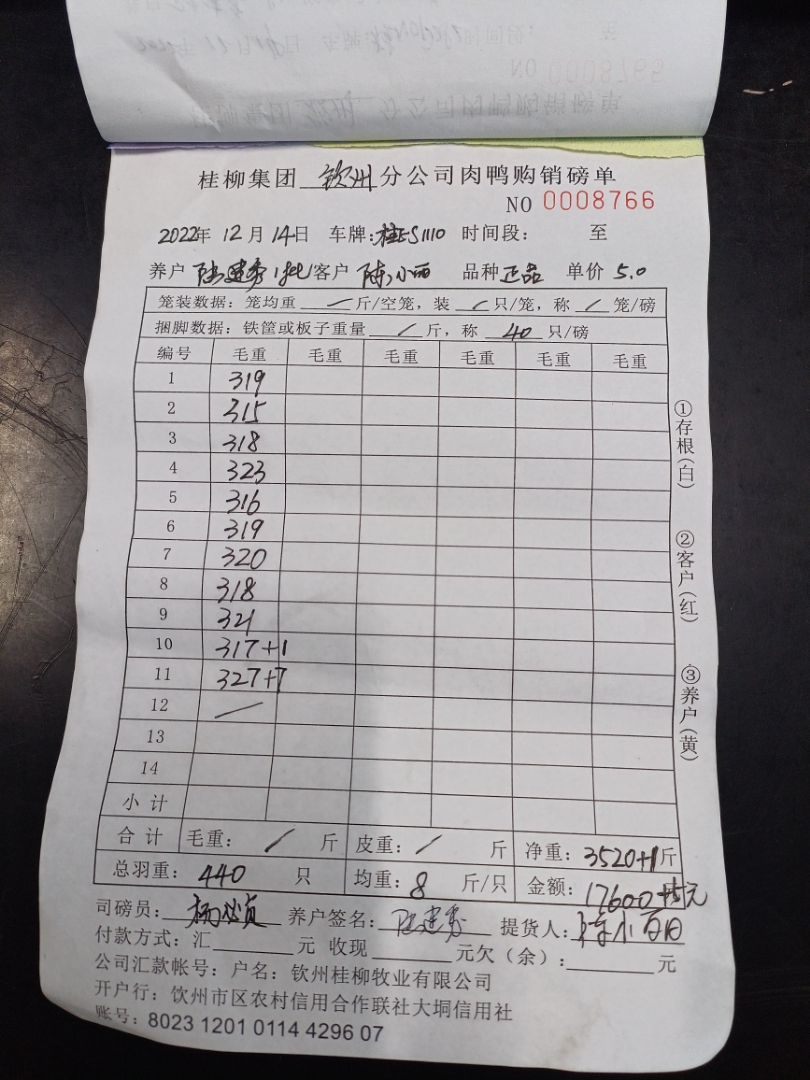 桂柳集团 钦州 分公司肉鸭购销磅单
NO 0008766
2022年 12月 14日 车牌: 时间段: 至
养户 陆建秀 1批 客户 陈小丽 品种 正品 单价 5.0
笼装数据: 笼均重 / 斤/空笼, 装 / 只/笼, 称 / 笼/磅
捆脚数据: 铁筐或板子重量 / 斤, 称 40 只/磅
编号 毛重 毛重 毛重 毛重 毛重 毛重
1 319
2 315
3 318
4 323
5 316
6 319
7 320
8 318
9 321
10 317+1
11 327+7
12 /
13
14
小计
合计 毛重: / 斤 皮重: / 斤 净重: 3520+1斤
总羽重: 440 只 均重: 8 斤/只 金额: 17600+5元
司磅员: 养户签名: 陆建秀 提货人:
付款方式: 汇 元 收现 元欠(余): 元
公司汇款帐号: 户名: 钦州桂柳牧业有限公司
开户行: 钦州市区农村信用合作联社大垌信用社
账号: 8023 1201 0114 4296 07
①存根(白) ②客户(红) ③养户(黄)